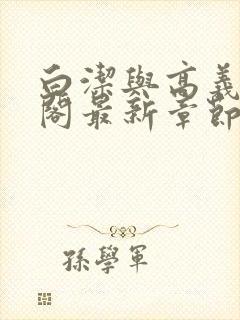 白潔與高義
閣最新章節
孫學軍